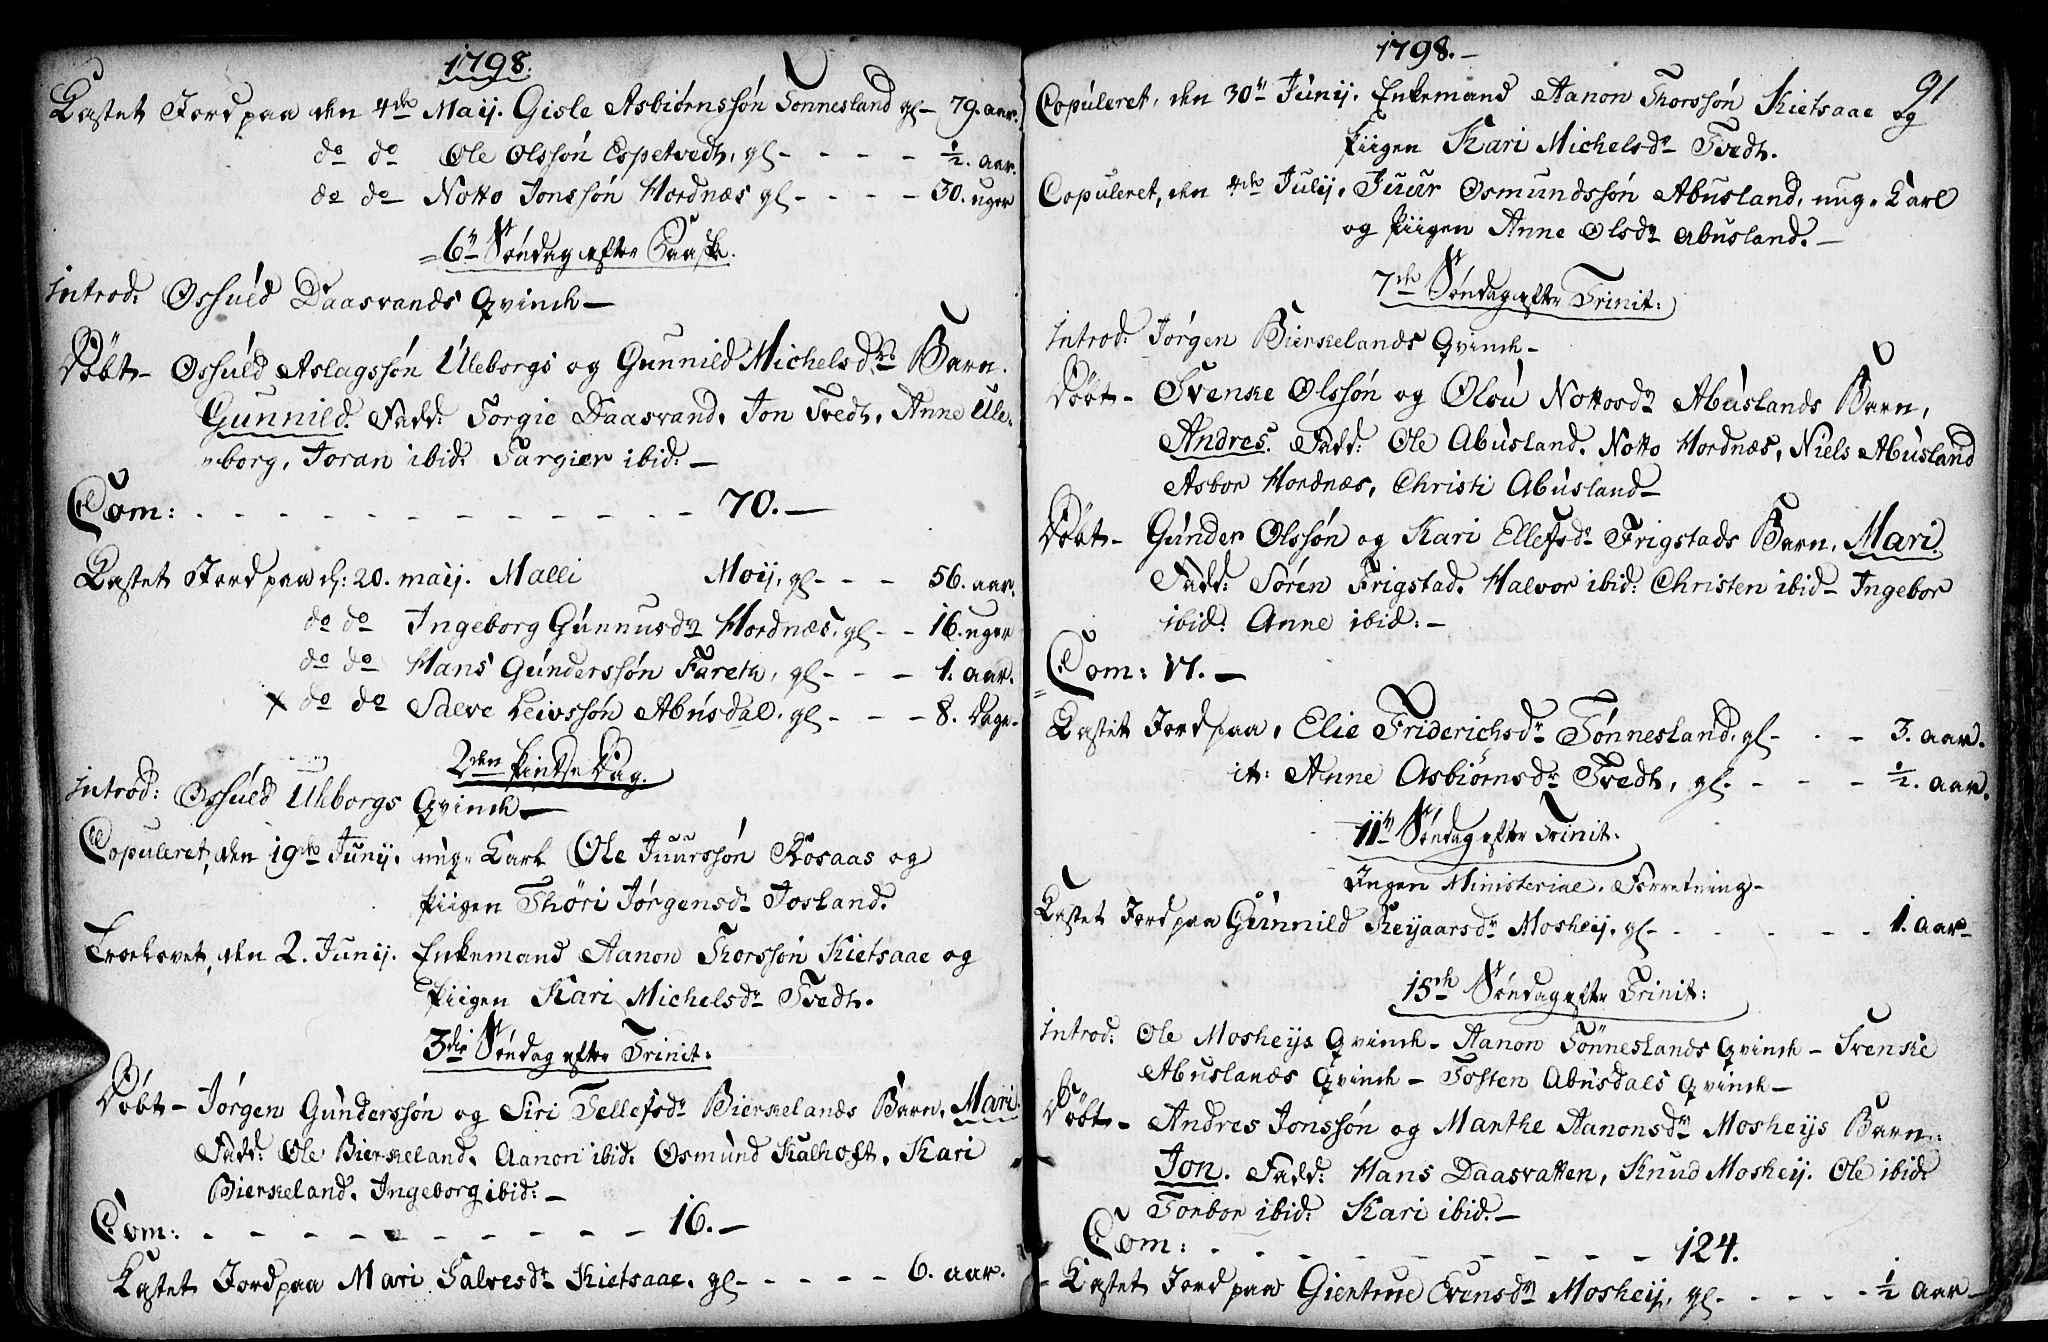 1798.
Kastet Jord paa den 4de Maij. Gisle Asbiørnssøn Tonnesland gl - 79. aar.
do do Ole Olssøn Espetvedt, gl - - - - ½. aar.
do do Notto Jonssøn Hordnæs gl - - - - 30. uger
6te Søndag efter Paaske.
Introd: Osfuld Daasvands Qvinde -
Døbt - Osfuld Aslagssøn Uleborgs og Gunnild Michelsdrs Barn.
Gunnild. Fadd: Torgie Daasvand, Jon Tvedt, Anne Ule-
borg, Joran ibid: Targier ibid: -
Com: - - - - - - - - - - 70. -
Kastet Jord paa d: 20. maij. Malli Moij, gl - - - 56. aar.
do do Ingeborg Gunnusdr Hordnæs, gl - - 16. uger
do do Hans Gunderssøn Fareth, gl - - - 1. aar.
x do do Salve Leivssøn Abusdal, gl - - - 8. Dage -
2den Pintse Dag.
Introd: Osfuld Uleborgs Qvinde -
Copuleret, den 19de Junij. ung Karl Ole Juurssøn Rosaas og
Piigen Thöri Jørgensdr Josland.
Troelovet, den 2. Junij. Enkemand Aanon Thorssøn Kietsaae og
Piigen Kari Michelsdr Tvedt.
3die Søndag efter Trinit:
Døbt - Jørgen Gunderssøn og Siri Tellefsdr Bierkelands Barn, Mari.
Fadd: Ole Bierkeland, Aanon ibid: Osmund Kalhoft, Kari
Bierkeland, Ingeborg ibid: -
Com: - - - - - - - - - 16. -
Kastet Jord paa Mari Salvesdr Kietsaae, gl - - - - - 6. aar.
1798. -
91
Copuleret, den 30te Junij, Enkemand Aanon Thorssøn Kietsaae og
Piigen Kari Michelsdr Tvedt.
Copuleret, den 4de Julij, Juur Osmundssøn Abusland, ung Karl
og Piigen Anne Olsdr Abusland. -
7de Søndag efter Trinit:
Introd: Jørgen Bierkelands Qvinde -
Døbt - Svenke Olssøn og Olou Nottosdr Abuslands Barn,
Andres. Fadd: Ole Abusland, Notto Hordnæs, Niels Abusland
Asbor Hordnæs, Christi Abusland -
Døbt - Gunder Olssøn og Kari Ellefsdr Frigstads Barn, Mari.
Fadd: Sören Frigstad, Halvor ibid: Christen ibid - Ingebor
ibid: Anne ibid: -
Com: 17. -
Kastet Jord paa, Elie Friderichsdr Tønnesland, gl - - - 3. aar.
it: Anne Asbiörnsdr Tvedt, gl. - - - - ½. aar.
11te Søndag efter Trinit:
Ingen Ministerial Forretning -
Kastet Jord paa Gunnild Reijaarsdr Mosheij, gl - - - - - - 1. aar -
15de Søndag efter Trinit:
Introd: Ole Mosheijs Qvinde - Aanon Tönneslands Qvinde - Svenke
Abuslands Qvinde - Tosten Abusdals Qvinde -
Døbt - Andres Jonssøn og Marthe Aanonsdr Mosheijs Barn:
Jon. Fadd: Hans Daasvatten, Knud Mosheij. Ole ibid:
Torbor ibid: Kari ibid: -
Com: - - - - - - - - - 124.
Kastet Jord paa Giertrue Evensdr Mosheij, gl - - - - - ½ aar -